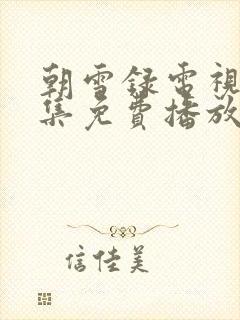 朝雪録電視
集免費播放
信佳美